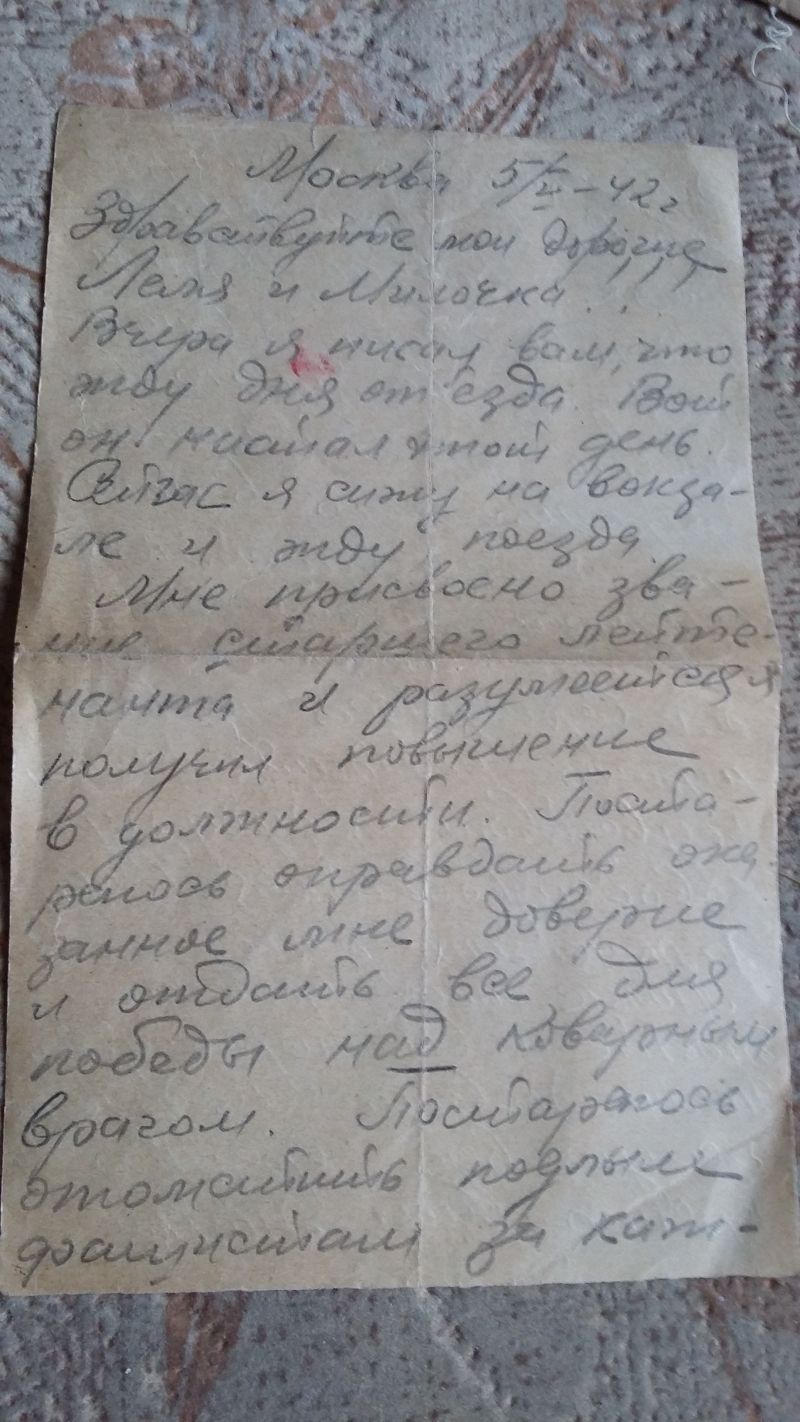 Москва 5/II-42г
Здравствуйте мои дорогие
Леля и Милочка!!!
Вчера я писал вам, что
жду дня от'езда. Вот
он настал этот день.
Сейчас я сижу на вокза-
ле и жду поезда
Мне присвоено зва-
ние старшего лейте-
нанта и разумеется я
получил повышение
в должности. Поста-
раюсь оправдать ока-
занное мне доверие
и отдать все для
победы над коварным
врагом. Постараюсь
отомстить подлым
фашистам за каж-